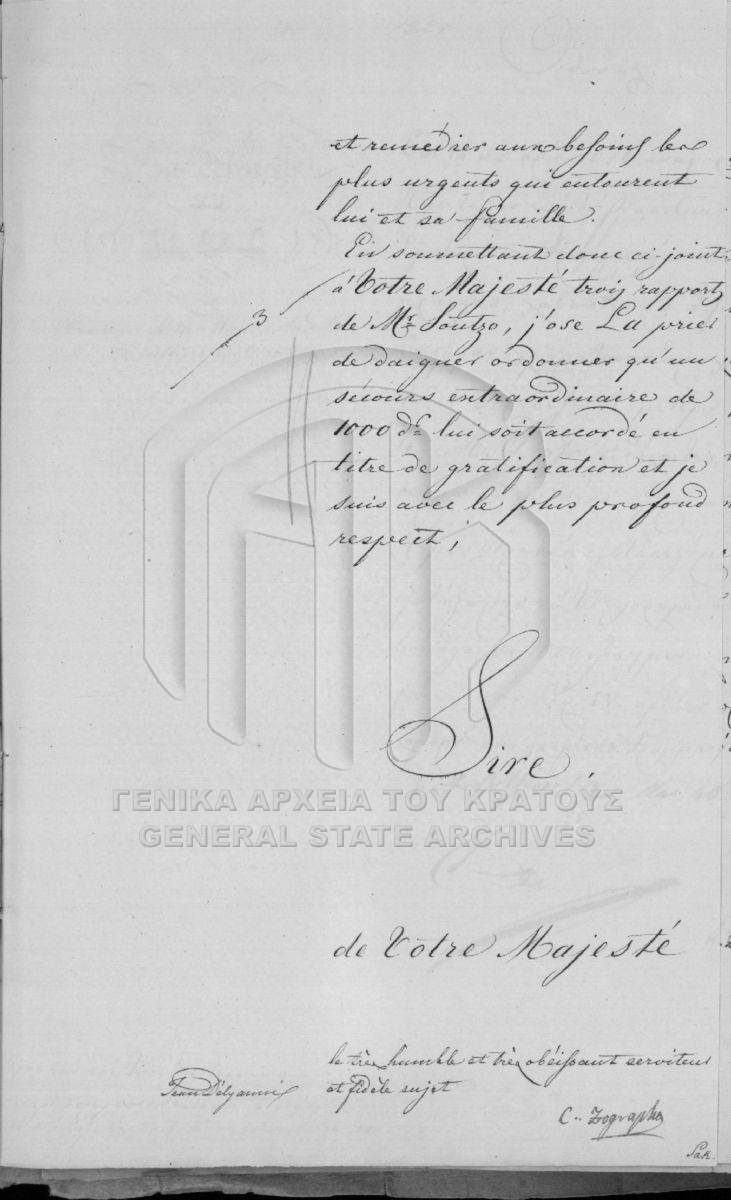 et remédier aux besoins les
plus urgents qui entourent
lui et sa famille.
En soumettant donc ci-joint
à Votre Majesté trois rapports
3
de Mr. Soutzo, j'ose La prier
de daigner ordonner qu'un
sécours extraordinaire de
1000 dr. lui soit accordé en
titre de gratification et je
suis avec le plus profond
respect;
Sire,
ΓΕΝΙΚΑ ΑΡΧΕΙΑ ΤΟΥ ΚΡΑΤΟΥΣ
GENERAL STATE ARCHIVES
de Votre Majesté
le très humble et très obéissant serviteur
et fidèle sujet
Jean Délyanni
C. Zographos